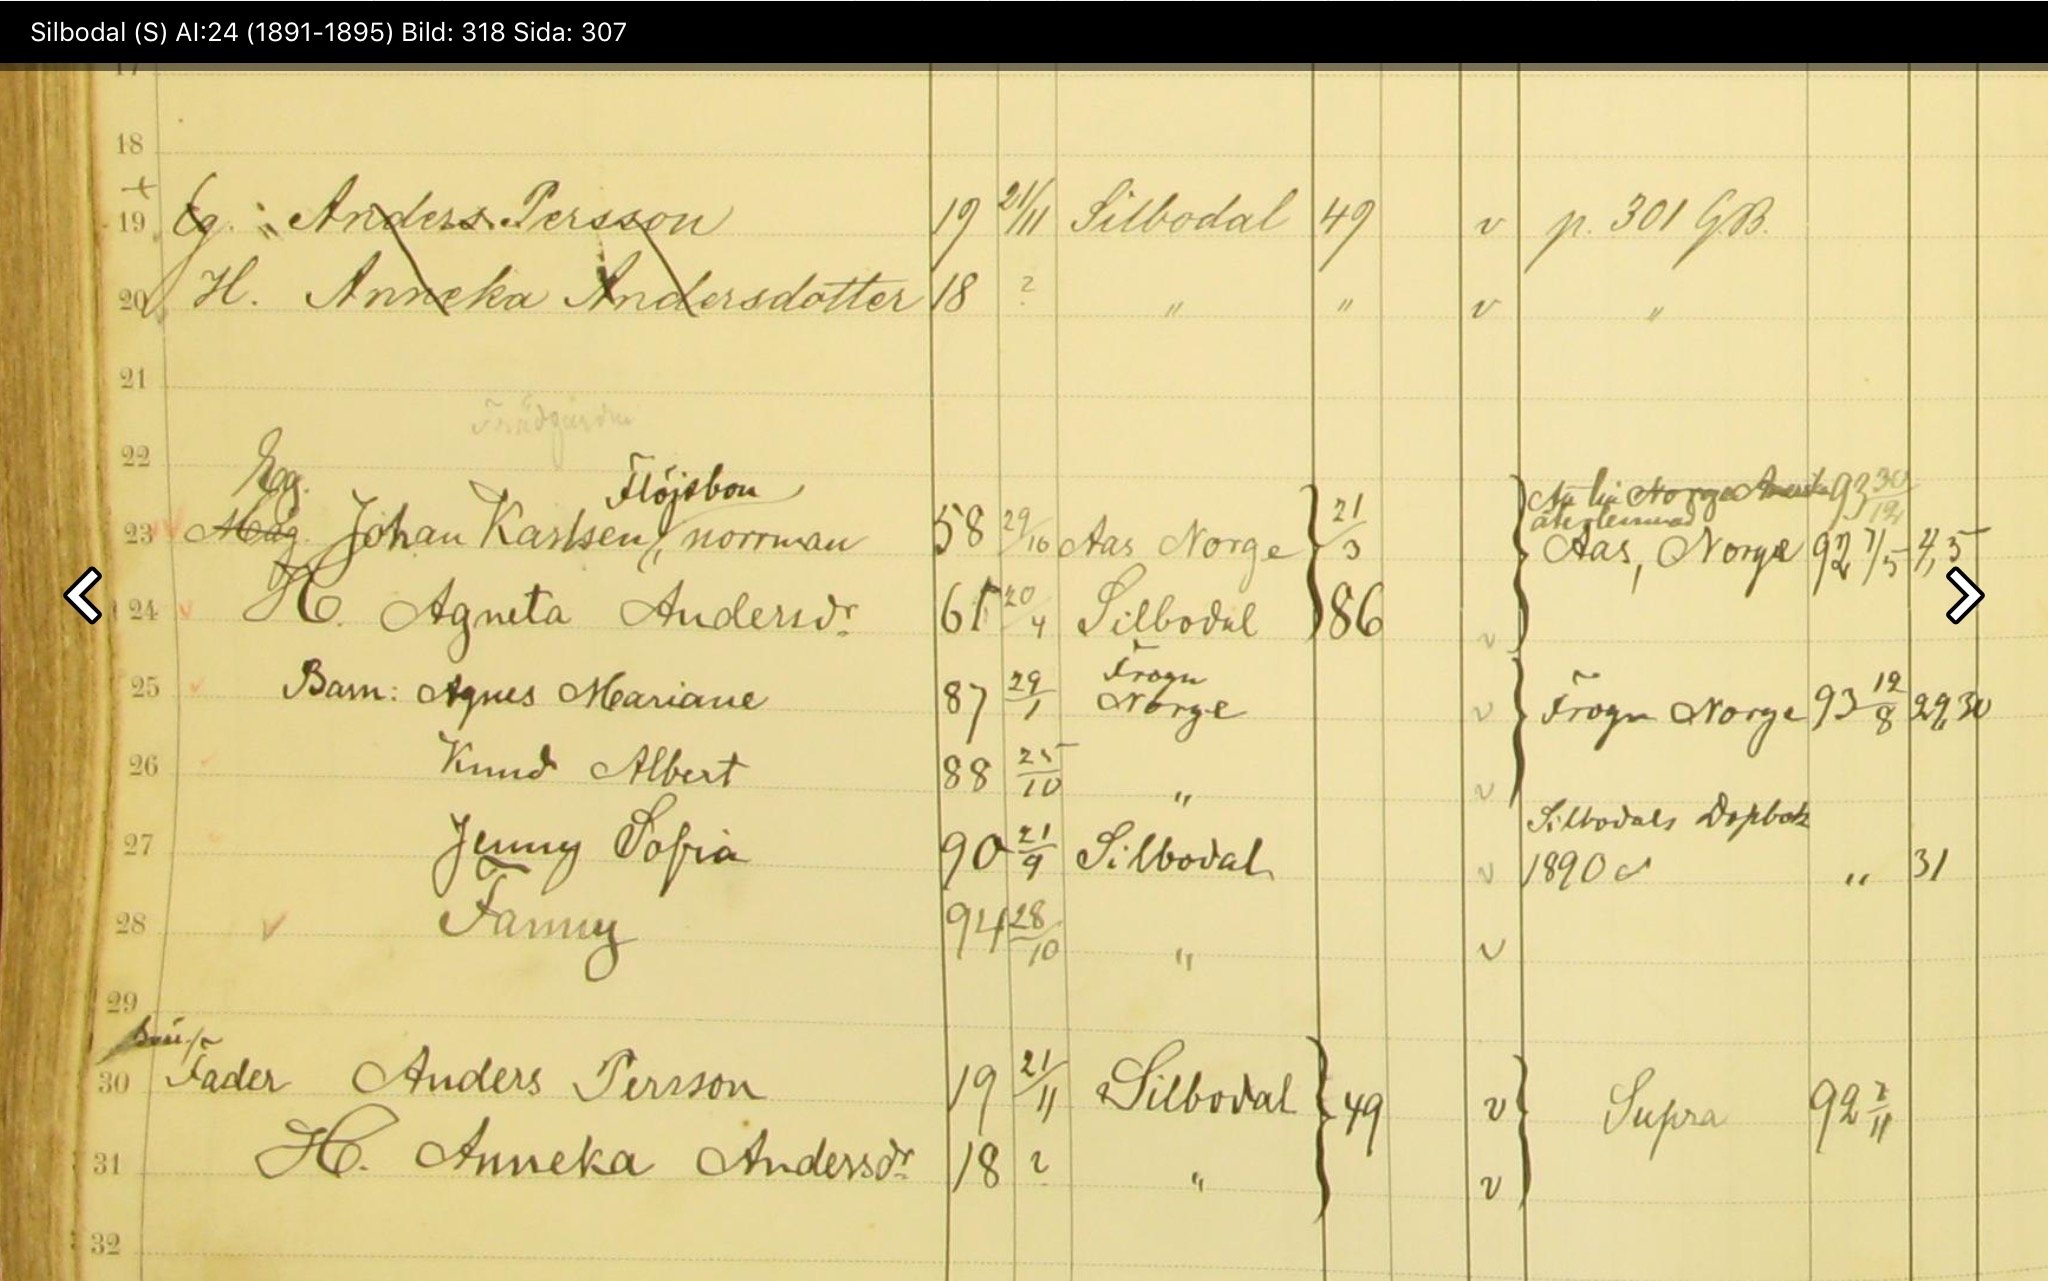 Silbodal (S) AI:24 (1891-1895) Bild: 318 Sida: 307
17
18
19 Eg. Anders Persson 19 21/11 Silbodal 49 v p. 301 GB.
20 H. Anneka Andersdotter 18 ? " " v "
21
22
Eg. Flöjsbon 93 30/12
återlemnad
23 Måg. Johan Karlsen, norrman 58 29/10 Aas Norge 21/3 Aas, Norge 92 7/5 4,5
24 H. Agneta Andersdr 61 20/4 Silbodal 86 v
Frogn
25 Barn: Agnes Mariane 87 29/1 Norge v Frogn Norge 93 12/8 29,30
26 Knud Albert 88 25/10 " v
Silbodals Dopbok
27 Jenny Sofia 90 21/9 Silbodal v 1890 " 31
28 Fanny 94 28/10 " v
29
30 Fader Anders Persson 19 21/11 Silbodal 49 v Supra 92 2/11
31 H. Anneka Andersdr 18 ? " v
32